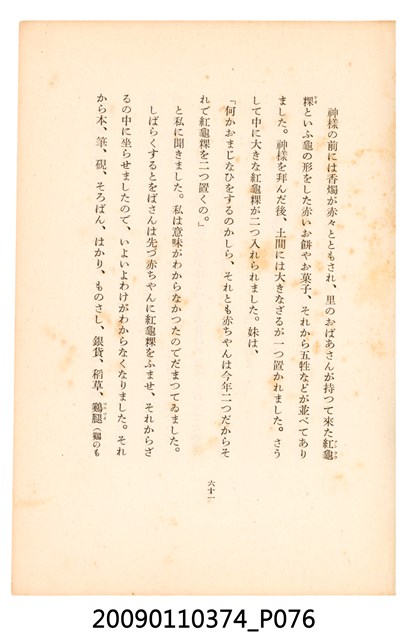 神樣の前には香燭が赤々とともされ、里のおばあさんが持つて來た紅龜
粿といふ龜の形をした赤いお餅やお菓子、それから五牲などが並べてあり
ました。神樣を拜んだ後、土間には大きなざるが一つ置かれました。さう
して中に大きな紅龜粿が二つ入れられました。妹は、
「何かおまじなひをするのかしら、それとも赤ちやんは今年二つだからそ
れで紅龜粿を二つ置くの。」
と私に聞きました。私は意味がわからなかつたのでだまつてゐました。
しばらくするとをばさんは先づ赤ちやんに紅龜粿をふませ、それからざ
るの中に坐らせましたので、いよいよわけがわからなくなりました。それ
から本、筆、硯、そろばん、はかり、ものさし、銀貨、稻草、鷄腿（鷄のも
六十一
20090110374_P076